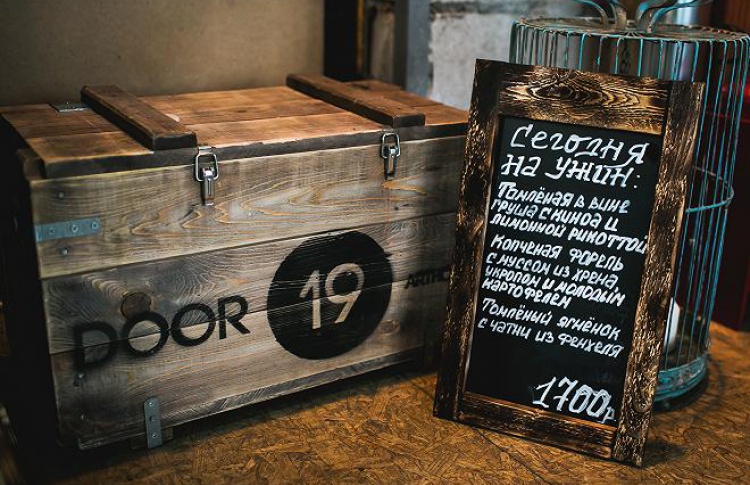 DOOR 19
Сегодня
на ужин:
Томлёная в вине
груша с киноа и
лимонной рикоттой
Копченая форель
с муссом из хрена,
укропом и молодым
картофелем
Томлёный ягнёнок
с чатни из фенхеля
1700р